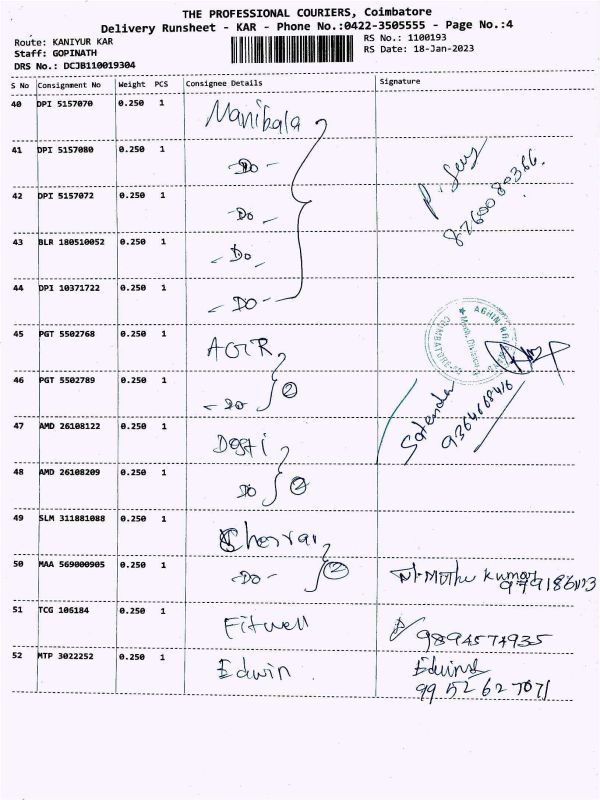 THE PROFESSIONAL COURIERS, Coimbatore
Delivery Runsheet - KAR - Phone No.:0422-3505555 - Page No.:4
Route: KANIYUR KAR
Staff: GOPINATH
DRS No.: DCJB110019304
RS No.: 1100193
RS Date: 18-Jan-2023
S No Consignment No Weight PCS Consignee Details Signature
40 DPI 5157070 0.250 1 Manibala
41 DPI 5157080 0.250 1 -Do-
42 DPI 5157072 0.250 1 -Do-
8760080366.
43 BLR 180510052 0.250 1 -Do-
44 DPI 10371722 0.250 1 -Do-
45 PGT 5502768 0.250 1
46 PGT 5502789 0.250 1 -Do- 2
9364668416
47 AMD 26108122 0.250 1
48 AMD 26108209 0.250 1 Do 2
49 SLM 311881088 0.250 1
50 MAA 569000905 0.250 1 -Do- 2 Kumar
51 TCG 106184 0.250 1 Fitwell 9894574935
52 MTP 3022252 0.250 1 Edwin Edwin
9952627071